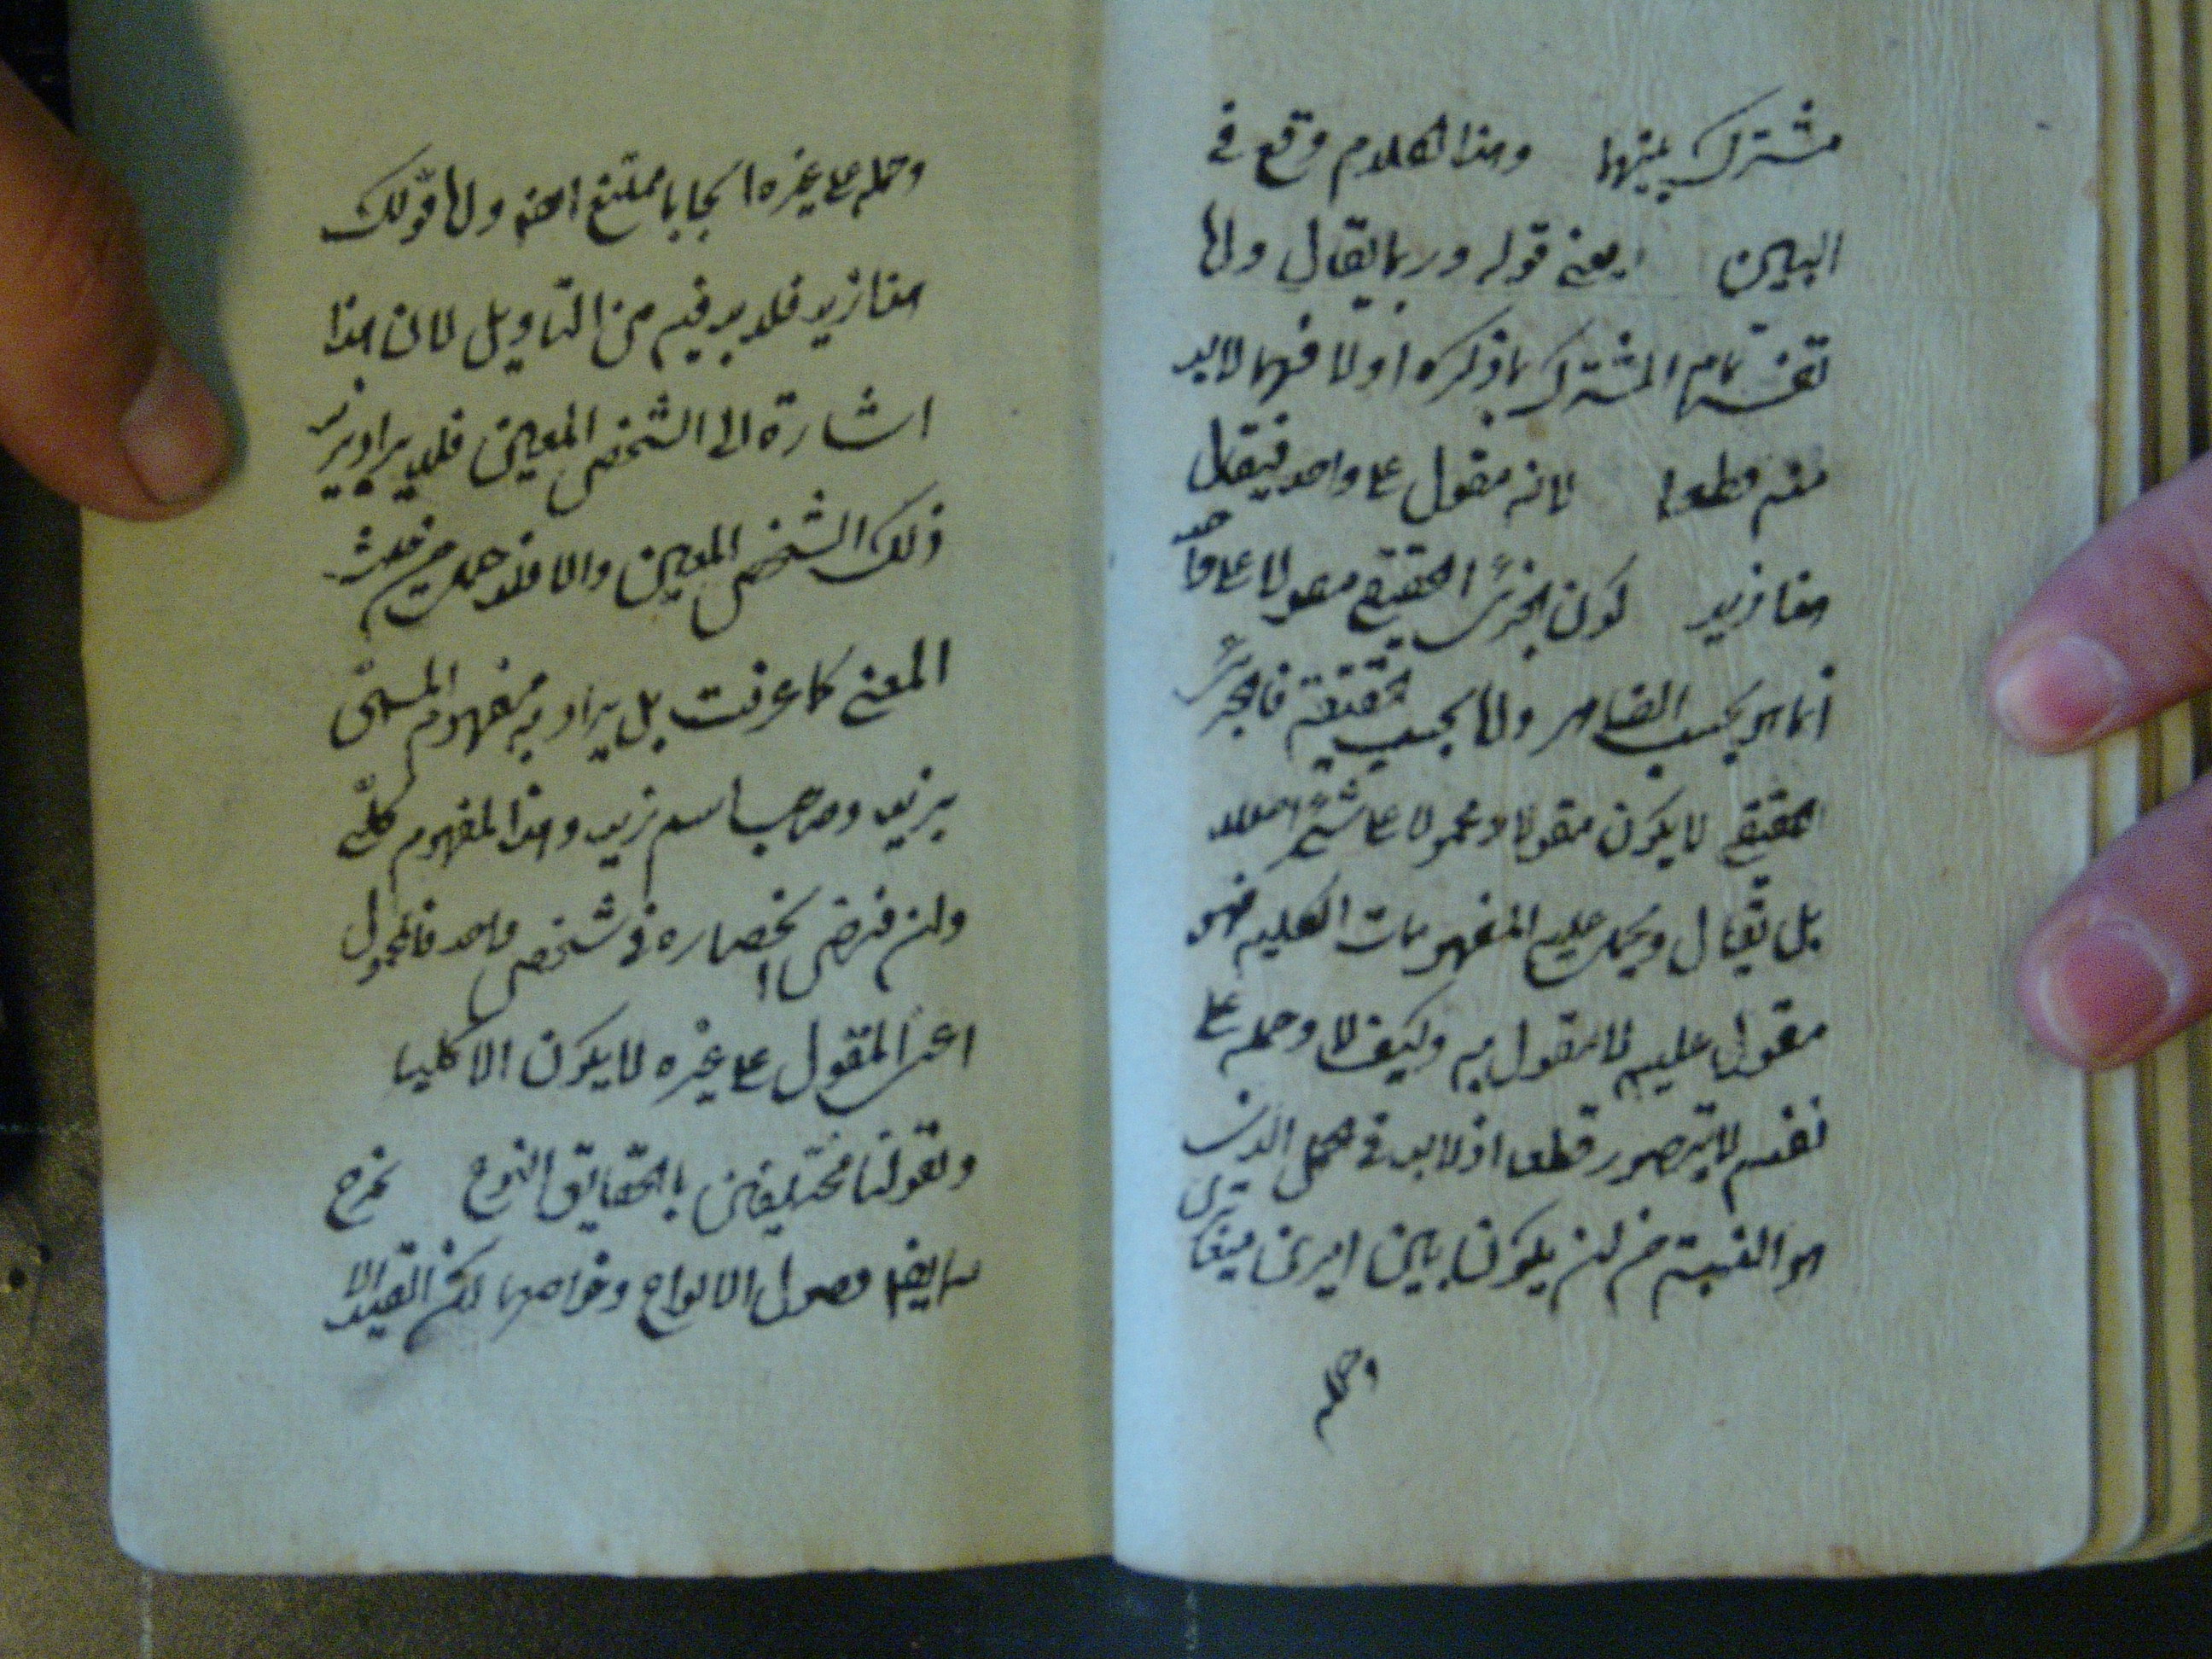 مشترك بينهما وهذا الكلام وقع في
البين يعني قوله وربما يقال ولما
تفسير تمام المشترك بما ذكره اولا فهما لا بد
منه قطعا لانه مقول على واحد فيقال
هذا زيد كون الجزئي الحقيقي مقولا على واحد
انما هو بحسب الظاهر واما بحسب الحقيقة فالجزئي
الحقيقي لا يكون مقولا ومحمولا على شئ اصلا
بل يقال ويحمل عليه المفهومات الكلية فهو
مقول عليه لا مقول به وكيف لا وحمله على
نفسه لا يتصور قطعا اذ لا بد في الحمل الذي
هو النسبة من ان يكون بين امرين متغايرين
وحمله
وحمله على غيره ايجابا ممتنع ايضا واما قولك
هذا زيد فلا بد فيه من التاويل لان هذا
اشارة الى الشخص المعين فلا يراد بزيد
ذلك الشخص المعين والا فلا حمل من حيث
المعنى كما عرفت بل يراد به مفهوم المسمى
بزيد وصاحب اسم زيد وهذا المفهوم كلي
وان فرض انحصاره في شخص واحد فالمحمول
اعني المقول على غيره لا يكون الا كليا
وبقولنا مختلفين بالحقايق النوع يخرج
به ايضا فصول الانواع وخواصها لكن القيد الا